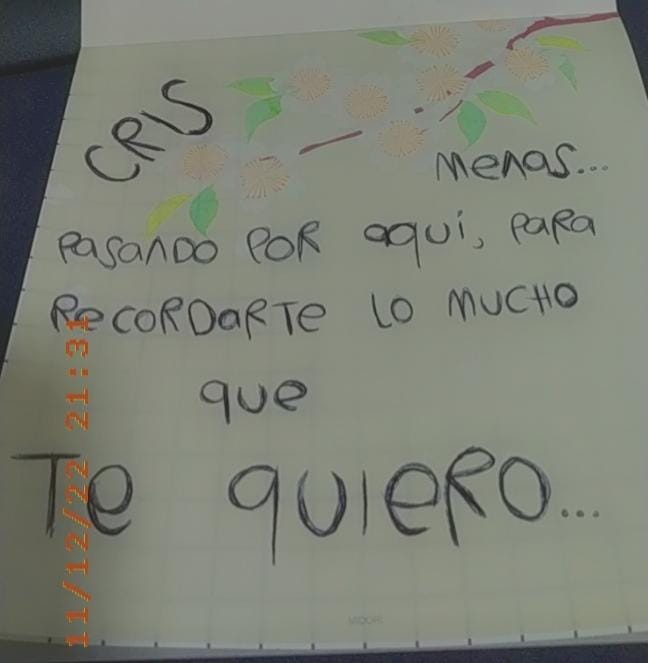 CRIS
Menas...
PASANDO POR aquí, PARA
RECORDARTE LO MUCHO
que
Te quiero...
MIDORI
11/12/22 21:31